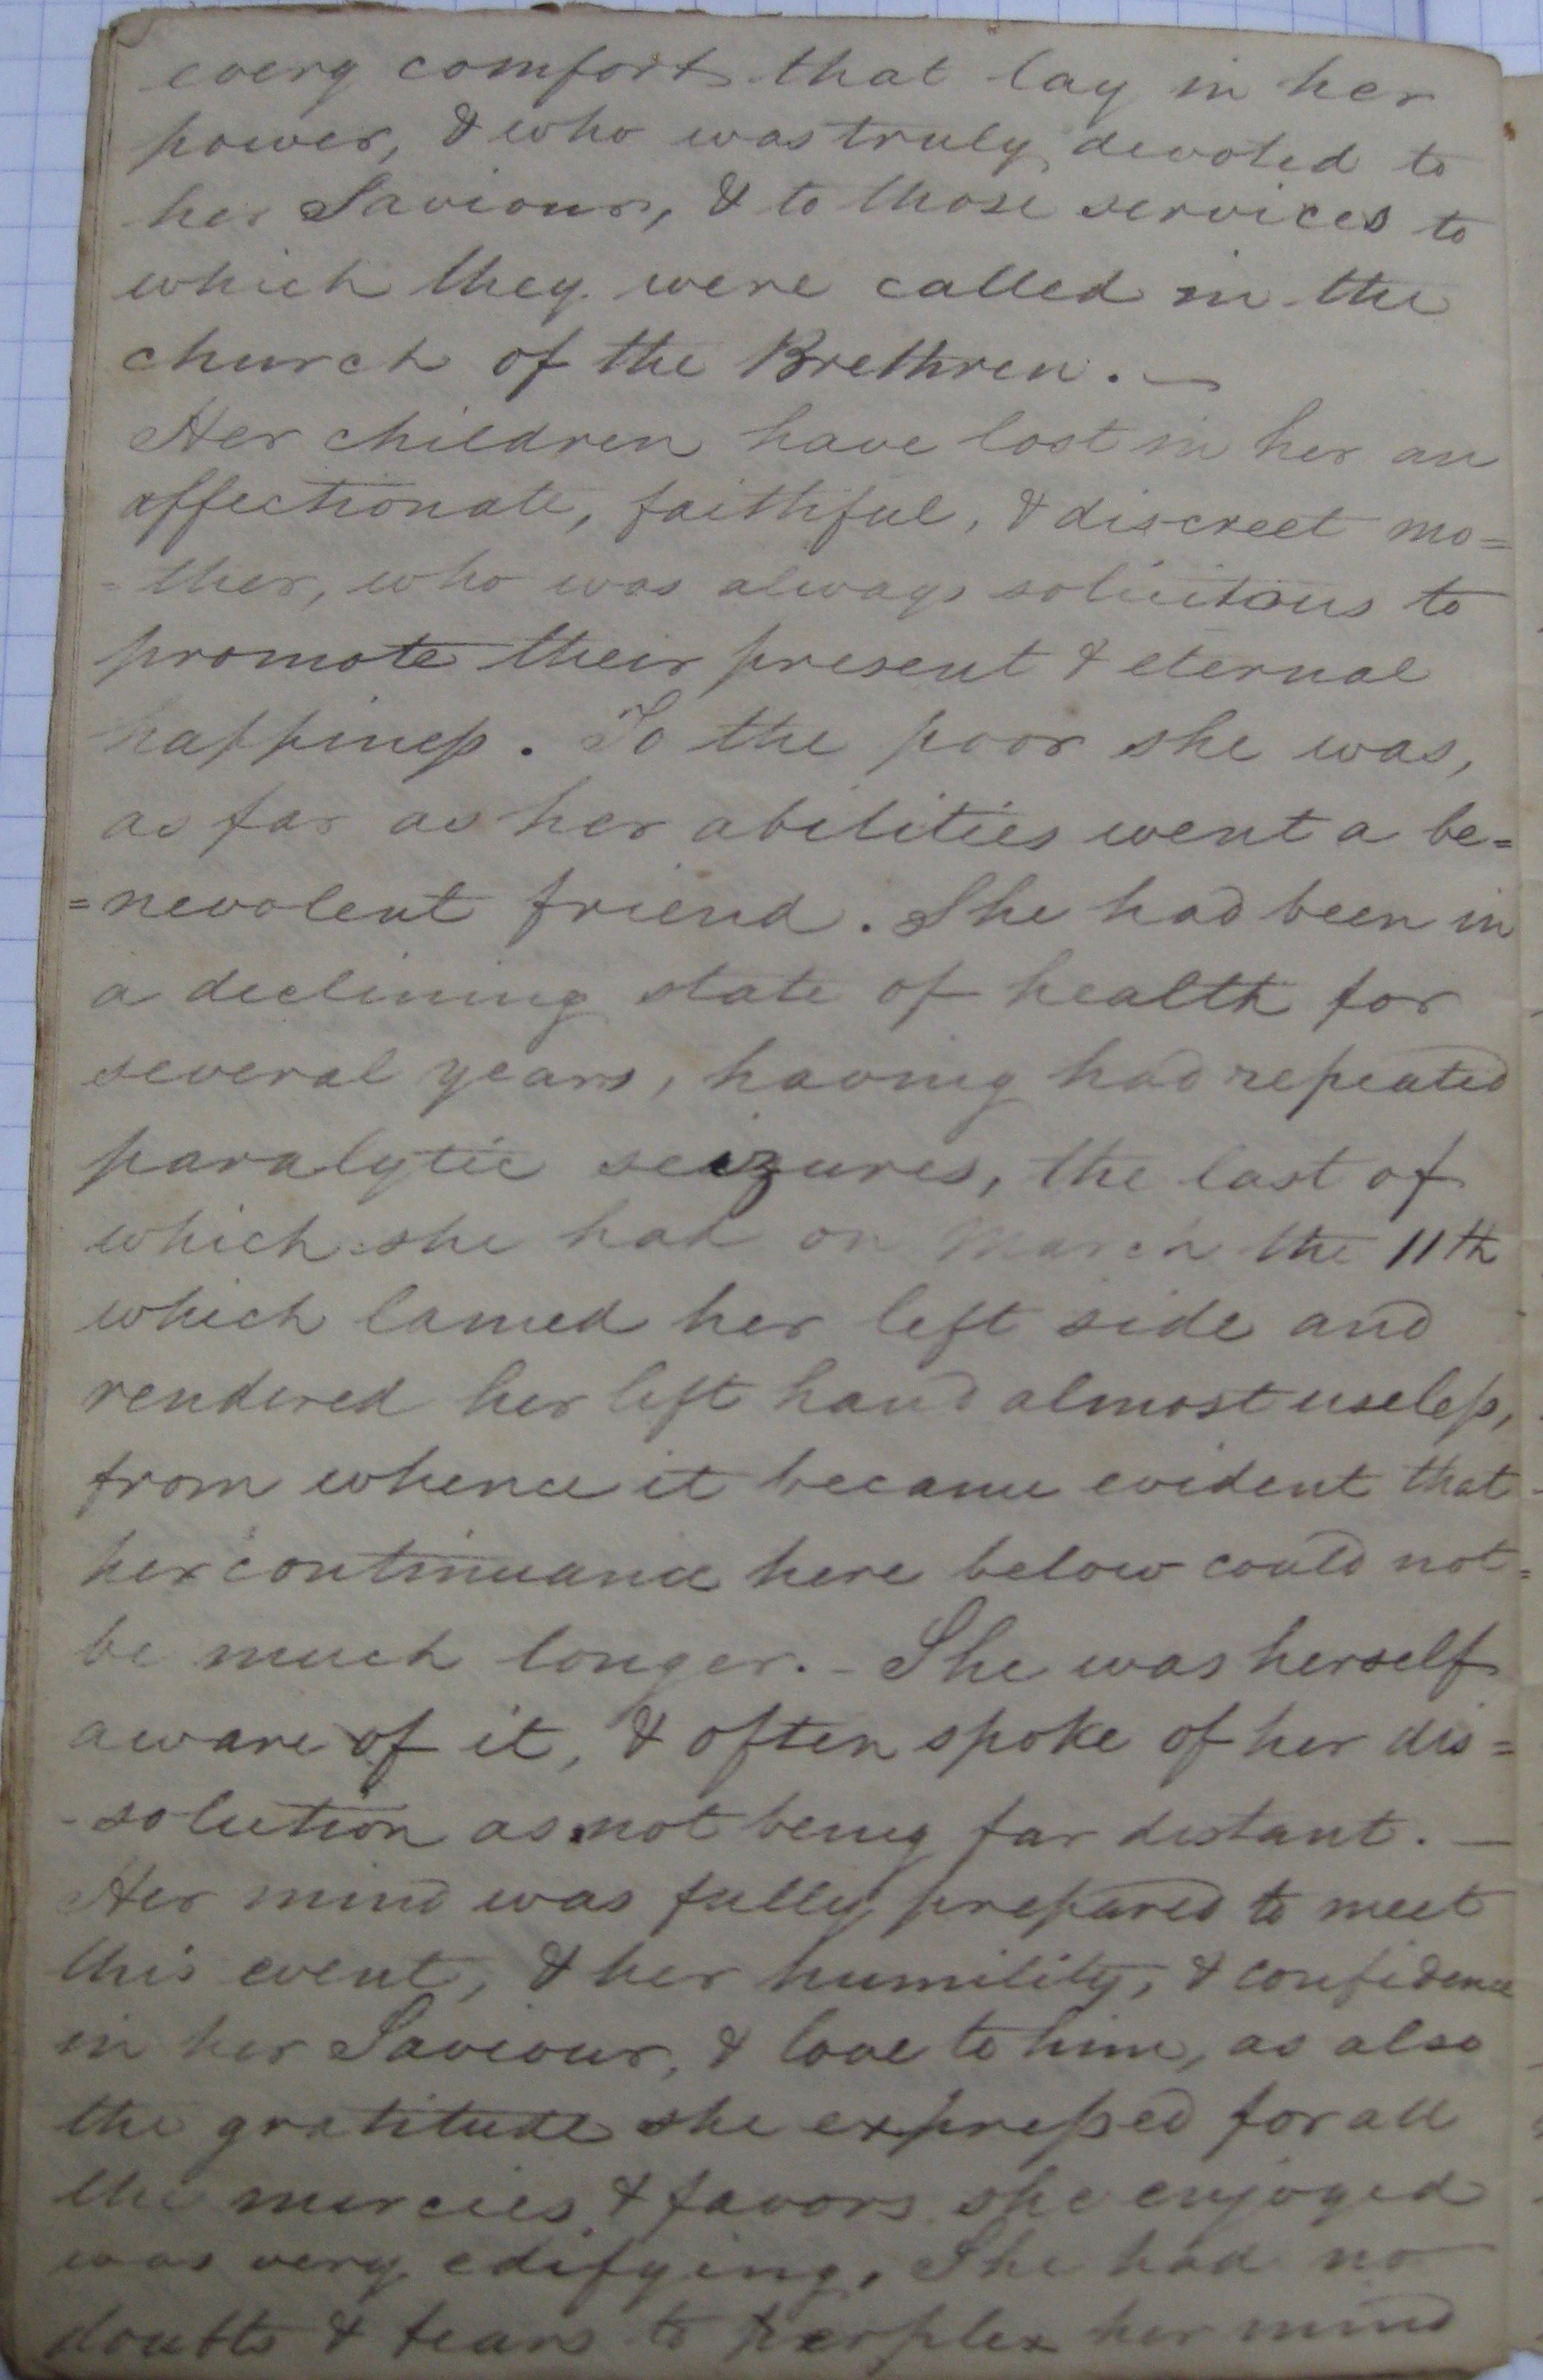 every comfort that lay in her
power, & who was truly devoted to
her Saviour, & to those services to
which they were called in the
church of the Brethren. —
Her children have lost in her an
affectionate, faithful, & discreet mo=
=ther, who was always solicitous to
promote their present & eternal
happiness. To the poor she was,
as far as her abilities went a be=
=nevolent friend. She had been in
a declining state of health for
several years, having had repeated
paralytic seizures, the last of
which she had on March the 11th
which lamed her left side and
rendered her left hand almost useless,
from whence it became evident that
her continuance here below could not
be much longer. - She was herself
aware of it, & often spoke of her dis=
-solution as not being far distant. —
Her mind was fully prepared to meet
this event, & her humility, & confidence
in her Saviour, & love to him, as also
the gratitude she expressed for all
the mercies & favors she enjoyed
was very edifying. She had no
doubts & fears to perplex her mind